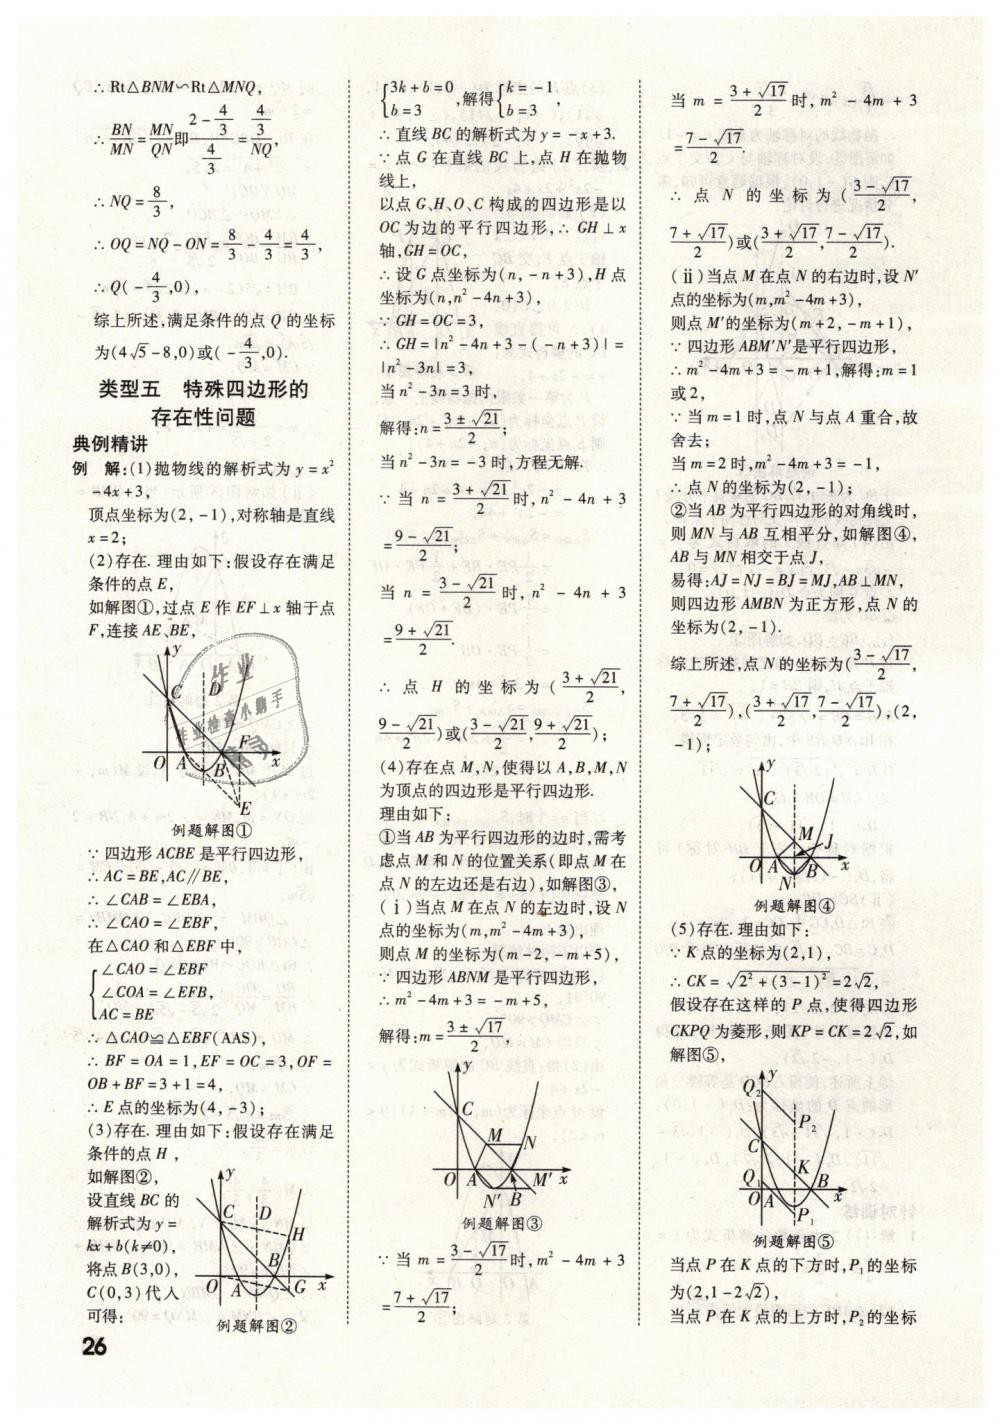 ∴ Rt△BNM∽Rt△MNQ,
∴ BN/MN = MN/QN 即 (2 - 4/3)/(4/3) = (4/3)/NQ,
∴ NQ = 8/3,
∴ OQ = NQ - ON = 8/3 - 4/3 = 4/3,
∴ Q(-4/3,0),
综上所述,满足条件的点 Q 的坐标
为(4√5-8,0)或(-4/3,0).
类型五 特殊四边形的
存在性问题
典例精讲
例 解:(1)抛物线的解析式为 y = x²
-4x+3,
顶点坐标为(2,-1),对称轴是直线
x=2;
(2)存在. 理由如下:假设存在满足
条件的点 E,
如解图①,过点 E 作 EF⊥x 轴于点
F,连接 AE、BE,
y
C D
O A B F x
E
例题解图①
∵ 四边形 ACBE 是平行四边形,
∴ AC = BE,AC∥BE,
∴ ∠CAB = ∠EBA,
∴ ∠CAO = ∠EBF,
在△CAO 和△EBF 中,
∠CAO = ∠EBF
∠COA = ∠EFB,
AC = BE
∴ △CAO≌△EBF(AAS),
∴ BF = OA = 1,EF = OC = 3,OF =
OB + BF = 3 + 1 = 4,
∴ E 点的坐标为(4,-3);
(3)存在. 理由如下:假设存在满足
条件的点 H,
如解图②,
设直线 BC 的
解析式为 y =
kx+b(k≠0),
将点 B(3,0),
C(0,3)代入
可得:
y
C D
H
B
O A G x
例题解图②
26
{3k+b=0 b=3 ,解得{k=-1 b=3 ,
∴ 直线 BC 的解析式为 y = -x+3.
∵ 点 G 在直线 BC 上,点 H 在抛物
线上,
以点 G、H、O、C 构成的四边形是以
OC 为边的平行四边形,∴ GH⊥x
轴,GH = OC,
∴ 设 G 点坐标为(n,-n+3),H 点
坐标为(n,n²-4n+3),
∵ GH = OC = 3,
∴ GH = |n²-4n+3-(-n+3)| =
|n²-3n| = 3,
当 n²-3n=3 时,
解得:n = (3±√21)/2;
当 n²-3n = -3 时,方程无解.
∵ 当 n = (3+√21)/2 时,n² - 4n + 3
= (9-√21)/2;
当 n = (3-√21)/2 时,n² - 4n + 3
= (9+√21)/2.
∴ 点 H 的坐标为 ((3+√21)/2,
(9-√21)/2)或((3-√21)/2,(9+√21)/2);
(4)存在点 M,N,使得以 A,B,M,N
为顶点的四边形是平行四边形.
理由如下:
①当 AB 为平行四边形的边时,需考
虑点 M 和 N 的位置关系(即点 M 在
点 N 的左边还是右边),如解图③,
(ⅰ)当点 M 在点 N 的左边时,设 N
点的坐标为(m,m²-4m+3),
则点 M 的坐标为(m-2,-m+5),
∵ 四边形 ABNM 是平行四边形,
∴ m²-4m+3 = -m+5,
解得:m = (3±√17)/2,
y
C
M N
O A M' x
N' B
例题解图③
∵ 当 m = (3-√17)/2 时,m² - 4m + 3
= (7+√17)/2;
当 m = (3+√17)/2 时,m² - 4m + 3
= (7-√17)/2
∴ 点 N 的坐标为 ((3-√17)/2,
(7+√17)/2)或((3+√17)/2,(7-√17)/2).
(ⅱ)当点 M 在点 N 的右边时,设 N'
点的坐标为(m,m²-4m+3),
则点 M'的坐标为(m+2,-m+1),
∵ 四边形 ABM'N'是平行四边形,
∴ m²-4m+3 = -m+1,解得:m=1
或 2,
∵ 当 m=1 时,点 N 与点 A 重合,故
舍去;
当 m=2 时,m²-4m+3 = -1,
∴ 点 N 的坐标为(2,-1);
②当 AB 为平行四边形的对角线时,
则 MN 与 AB 互相平分,如解图④,
AB 与 MN 相交于点 J,
易得:AJ = NJ = BJ = MJ,AB⊥MN,
则四边形 AMBN 为正方形,点 N 的
坐标为(2,-1).
综上所述,点 N 的坐标为((3-√17)/2,
(7+√17)/2),((3+√17)/2,(7-√17)/2),(2,
-1);
y
C
M J
O A B x
N
例题解图④
(5)存在. 理由如下:
∵ K 点的坐标为(2,1),
∴ CK = √(2²+(3-1)²) = 2√2,
假设存在这样的 P 点,使得四边形
CKPQ 为菱形,则 KP = CK = 2√2,如
解图⑤,
y
Q₂
P₂
C
K
Q₁
O A B x
P₁
例题解图⑤
当点 P 在 K 点的下方时,P₁的坐标
为(2,1-2√2),
当点 P 在 K 点的上方时,P₂的坐标
作业
作业检查小助手